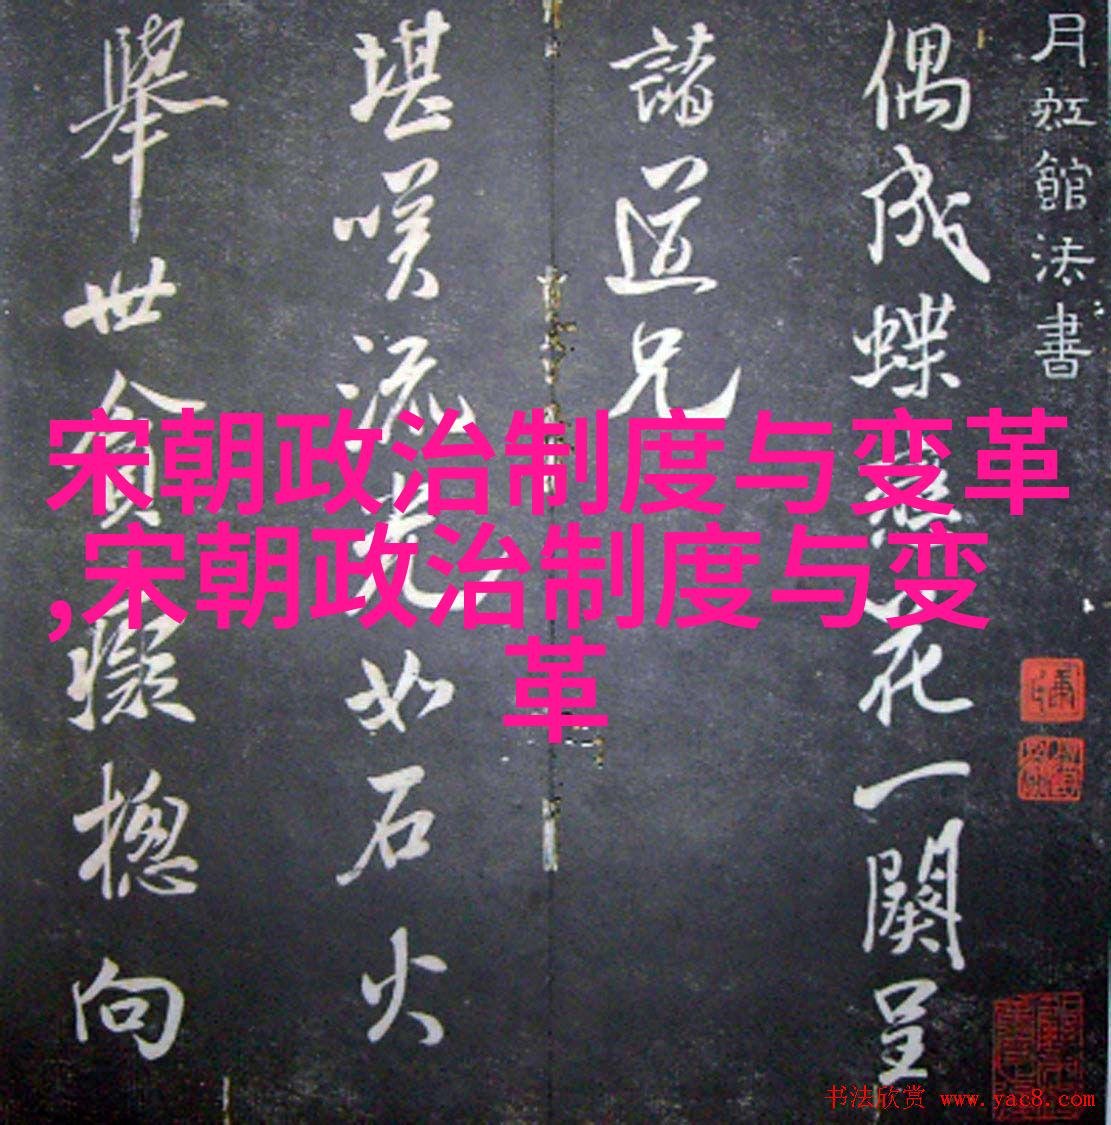 月虹館法書
偶成蝶戀花一闋呈
諸道兄
堪嘆流光如石火
舉世貪癡摠向
宋朝政治制度与变革
,宋朝政治制度与变
革
书法欣赏 www.yac8.com